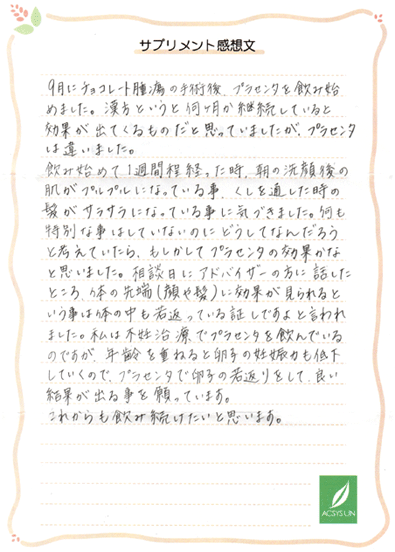 サプリメント感想文
9月にチョコレート腫瘍の手術後、プラセンタを飲み始
めました。漢方というと何ヶ月か継続していると
効果が出てくるものだと思っていましたが、プラセンタ
は違いました。
飲み始めて1週間程経った時、朝の洗顔後の
肌がプルプルになっている事、くしを通した時の
髪がサラサラになっている事に気づきました。何も
特別な事はしていないのにどうしてなんだろう
と考えていたら、もしかしてプラセンタの効果かな
と思いました。相談日にアドバイザーの方に話した
ところ、体の先端(顔や髪)に効果が見られると
いう事は体の中も若返っている証しですよと言われ
ました。私は不妊治療でプラセンタを飲んでいる
のですが、年齢を重ねると卵子の妊娠力も低下
していくので、プラセンタで卵子の若返りをして、良い
結果が出る事を願っています。
これからも飲み続けたいと思います。
ACSYS UN